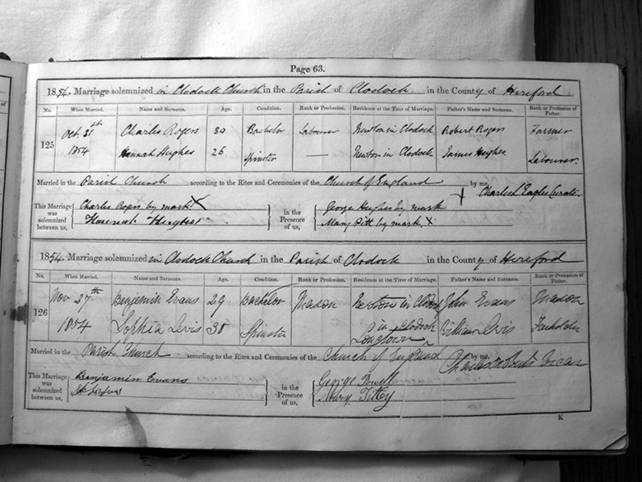 Page 63.
1854. Marriage solemnized in Clodock Church in the Parish of Clodock in the County of Hereford
No. When Married. Name and Surname. Age. Condition. Rank or Profession. Residence at the Time of Marriage. Father's Name and Surname. Rank or Profession of Father.
125 Oct. 31st Charles Rogers 30 Bachelor Labourer Newton in Clodock Robert Rogers Farmer
1854 Hannah Hughes 26 Spinster — Newton in Clodock James Hughes Labourer.
Married in the Parish Church according to the Rites and Ceremonies of the Church of England by me, Charles Eagles Curate.
This Marriage was solemnized between us, Charles Rogers by mark X
Hannah Hughes
in the Presence of us, George Hughes by mark
Mary Pitt by mark X
1854. Marriage solemnized in Clodock Church in the Parish of Clodock in the County of Hereford
No. When Married. Name and Surname. Age. Condition. Rank or Profession. Residence at the Time of Marriage. Father's Name and Surname. Rank or Profession of Father.
126 Nov 27th Benjamin Evans 29 Bachelor Mason Newton in Clodock John Evans Mason
1854 Sophia 38 Spinster Longtown in Clodock William
Married in the Parish Church according to the Rites and Ceremonies of the Church of England by me,
This Marriage was solemnized between us, Benjamin Evans
in the Presence of us, George Powell
Mary
K